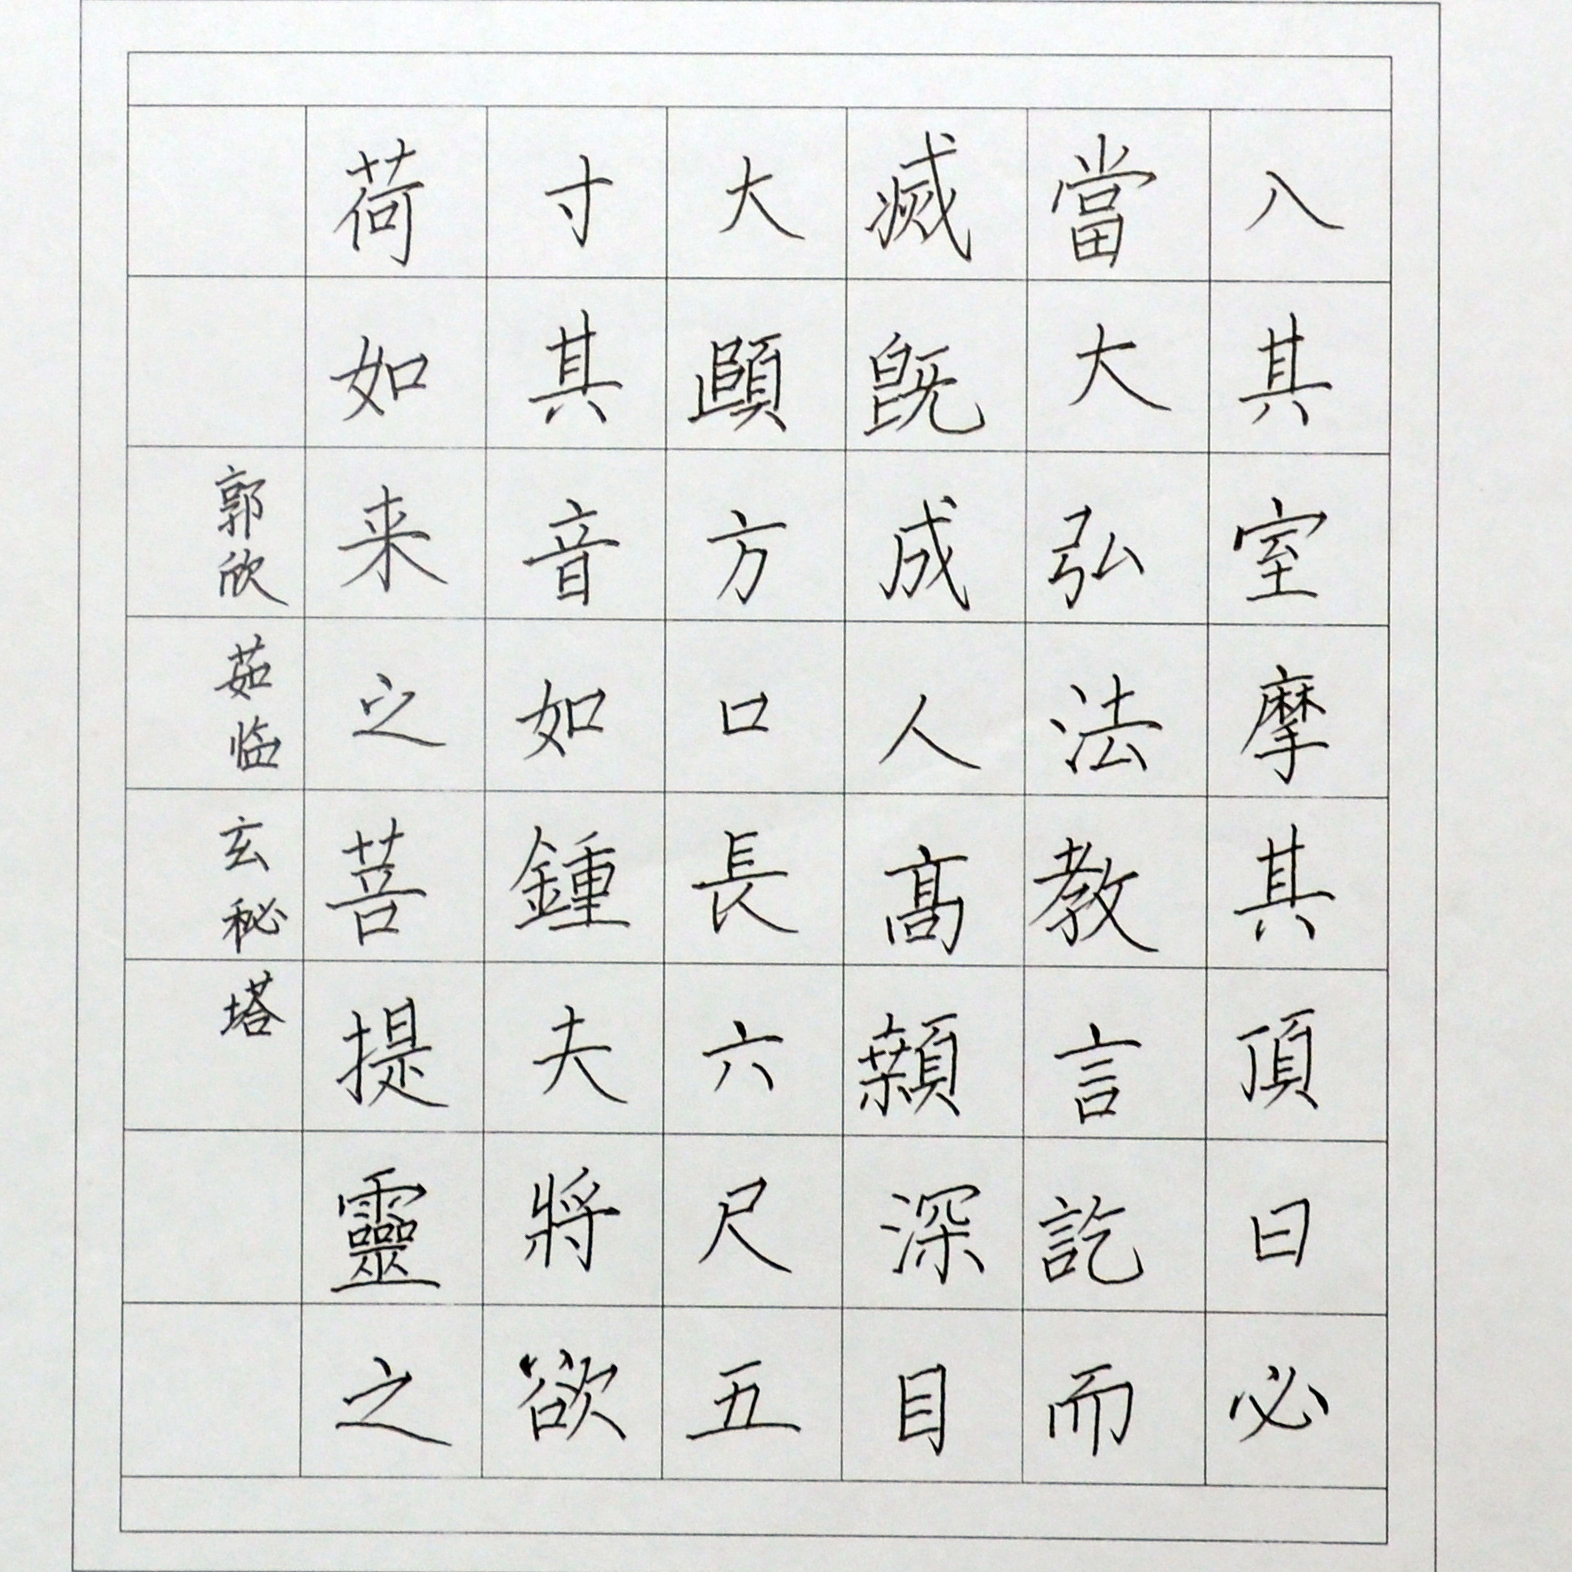 入其室摩其頂曰必
當大弘法教言訖而
滅既成人高顙深目
大頤方口長六尺五
寸其音如鍾夫將欲
荷如来之菩提靈之
郭欣茹临玄秘塔